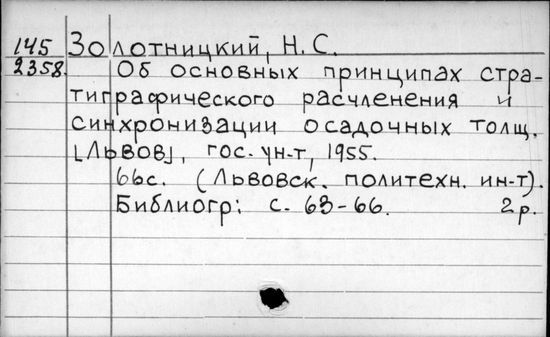 145 Золотницкий, Н. С.
2358. Об основных принципах стра-
тиграфического расчленения и
синхронизации осадочных толщ.
[Львов], гос. ун-т, 1955.
66с. (Львовск. политехн. ин-т).
Библиогр: с. 63-66. 2р.